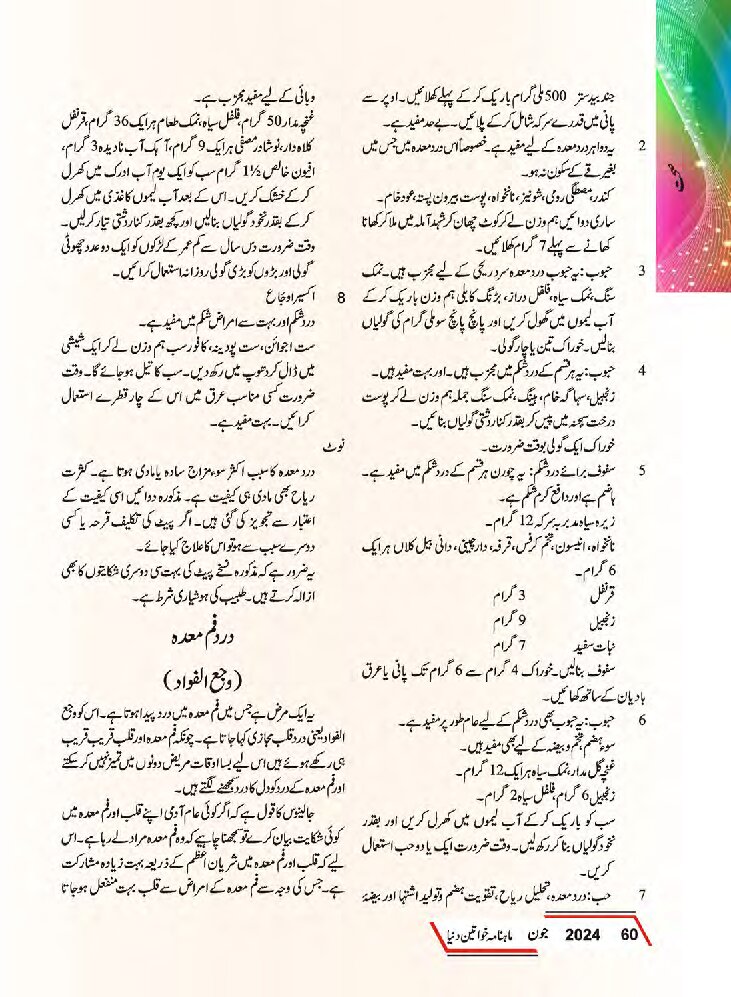 جند بیدستر 500 ملی گرام باریک کرکے پہلے کھلائیں۔ اوپر سے
پانی میں قدرے سرکہ شامل کرکے پلائیں۔ بے حد مفید ہے۔
2 یہ دوا ہر درد معدہ کے لیے مفید ہے۔ خصوصاً اس درد معدہ میں جس میں
بغیر قے کے سکون نہ ہو۔
کندر، مصطگی رومی، شونیز، نانخواہ، پوست بیرون پستہ، عود خام۔
ساری دوائیں ہم وزن لے کر کوٹ چھان کر شہد آملہ میں ملا کر کھانا
کھانے سے پہلے 7 گرام کھلائیں۔
3 حبوب: یہ حبوب درد معدہ سرد ریحی کے لیے مجرب ہیں۔ نمک
سنگ، نمک سیاہ، فلفل دراز، بڑنگ کابلی ہم وزن باریک کرکے
آب لیموں میں گھول کریں اور پانچ پانچ سو ملی گرام کی گولیاں
بنالیں۔ خوراک تین یا چار گولی۔
4 حبوب: یہ ہر قسم کے درد شکم میں مجرب ہیں۔ اور بہت مفید ہیں۔
زنجبیل، سہاگہ خام، ہینگ، نمک سنگ جملہ ہم وزن لے کر پوست
درخت سہجنہ میں پیس کر بقدر کنار دشتی گولیاں بنائیں۔
خوراک ایک گولی بوقت ضرورت۔
5 سفوف برائے درد شکم: یہ چورن ہر قسم کے درد شکم میں مفید ہے۔
ہاضم ہے اور دافع کرم شکم ہے۔
زیرہ سیاہ مدبر بہ سرکہ 12 گرام۔
نانخواہ، انیسون، تخم کرفس، قرفہ، دارچینی، دانی ہیل کلاں ہر ایک
6 گرام۔
قرنفل 3 گرام
زنجبیل 9 گرام
نبات سفید 7 گرام
سفوف بنالیں۔ خوراک 4 گرام سے 6 گرام تک پانی یا عرق
بادیان کے ساتھ کھائیں۔
6 حبوب: یہ حبوب بھی درد شکم کے لیے عام طور پر مفید ہے۔
سوء ہضم، تخم و ہیضہ کے لیے بھی مفید ہیں۔
غنچہ گل مدار، نمک سیاہ ہر ایک 12 گرام۔
زنجبیل 6 گرام، فلفل سیاہ 2 گرام۔
سب کو باریک کرکے آب لیموں میں کھرل کریں اور بقدر
نخود گولیاں بنا کر رکھ لیں۔ وقت ضرورت ایک یا دو حب استعمال
کریں۔
7 حب: درد معدہ، تحلیل ریاح، تقویت ہضم و تولید اشتہا اور ہیضۂ
وبائی کے لیے مفید مجرب ہے۔
غنچہ مدار 50 گرام، فلفل سیاہ، نمک طعام ہر ایک 36 گرام، قرنفل
کلاہ دار، نوشادر مصفیٰ ہر ایک 9 گرام، آہک آب نادیدہ 3 گرام،
افیون خالص 1½ گرام سب کو ایک یوم آب ادرک میں کھرل
کرکے خشک کریں۔ اس کے بعد آب لیموں کاغذی میں کھرل
کرکے بقدر نخود گولیاں بنالیں اور کچھ بقدر کنار دشتی تیار کرلیں۔
وقت ضرورت دس سال سے کم عمر کے لڑکوں کو ایک دو عدد چھوٹی
گولی اور بڑوں کو بڑی گولی روزانہ استعمال کرائیں۔
8 اکسیر اوجاع
درد شکم اور بہت سے امراض شکم میں مفید ہے۔
ست اجوائن، ست پودینہ، کافور سب ہم وزن لے کر ایک شیشی
میں ڈال کر دھوپ میں رکھ دیں۔ سب کا تیل ہوجائے گا۔ وقت
ضرورت کسی مناسب عرق میں اس کے چار قطرے استعمال
کرائیں۔ بہت مفید ہے۔
نوٹ
درد معدہ کا سبب اکثر سوء مزاج سادہ یا مادی ہوتا ہے۔ کثرت
ریاح بھی مادی ہی کیفیت ہے۔ مذکورہ دوائیں اسی کیفیت کے
اعتبار سے تجویز کی گئی ہیں۔ اگر پیٹ کی تکلیف قرحہ یا کسی
دوسرے سبب سے ہو تو اس کا علاج کیا جائے۔
یہ ضرور ہے کہ مذکورہ نسخے پیٹ کی بہت سی دوسری شکایتوں کا بھی
ازالہ کرتے ہیں۔ طبیب کی ہوشیاری شرط ہے۔
درد فم معدہ
(وجع الفواد)
یہ ایک مرض ہے جس میں فم معدہ میں درد پیدا ہوتا ہے۔ اس کو وجع
الفواد یعنی درد قلب مجازی کہا جاتا ہے۔ چونکہ فم معدہ اور قلب قریب قریب
ہی رکھے ہوئے ہیں اس لیے بسا اوقات مریض دونوں میں تمیز نہیں کرسکتے
اور فم معدہ کے درد کو دل کا درد سمجھنے لگتے ہیں۔
جالینوس کا قول ہے کہ اگر کوئی عام آدمی اپنے قلب اور فم معدہ میں
کوئی شکایت بیان کرے تو سمجھنا چاہیے کہ وہ فم معدہ مراد لے رہا ہے۔ اس
لیے کہ قلب اور فم معدہ میں شریان اعظم کے ذریعہ بہت زیادہ مشارکت
ہے۔ جس کی وجہ سے فم معدہ کے امراض سے قلب بہت منفعل ہوجاتا
60 2024 جون ماہنامہ خواتین دنیا